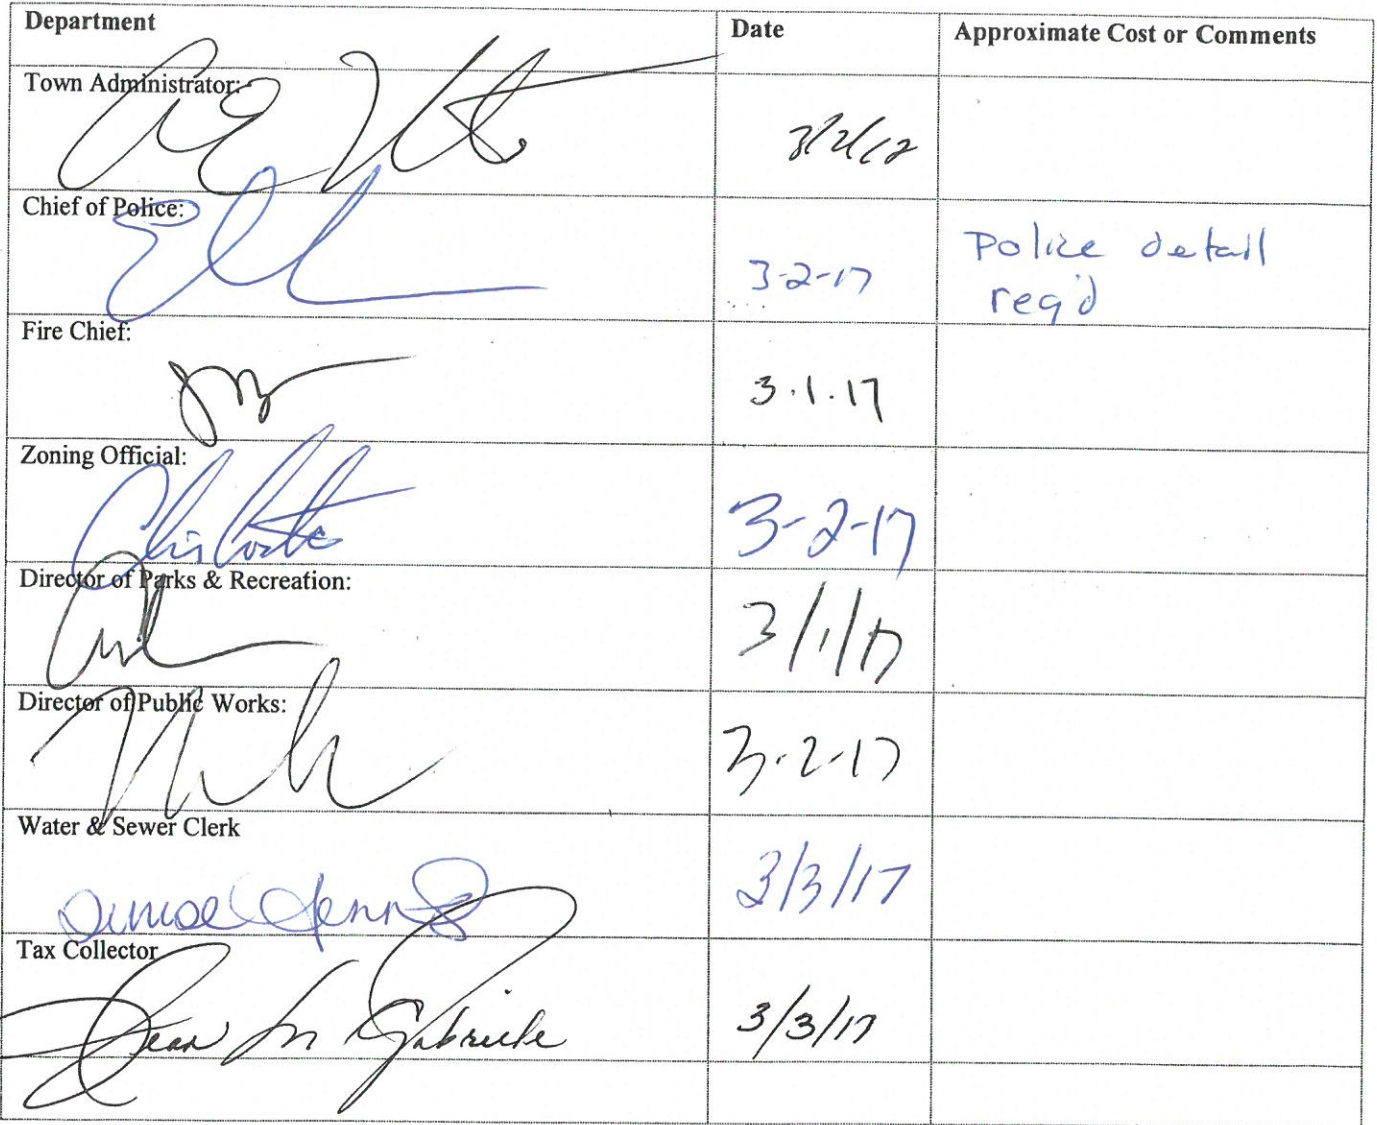 Department Date Approximate Cost or Comments
Town Administrator:
3/2/17
Chief of Police:
3-2-17 Police detail
req'd
Fire Chief:
3.1.17
Zoning Official:
3-2-17
Director of Parks & Recreation:
3/1/17
Director of Public Works:
3-2-17
Water & Sewer Clerk
3/3/17
Denise
Tax Collector
Jean M Gabriele 3/3/17